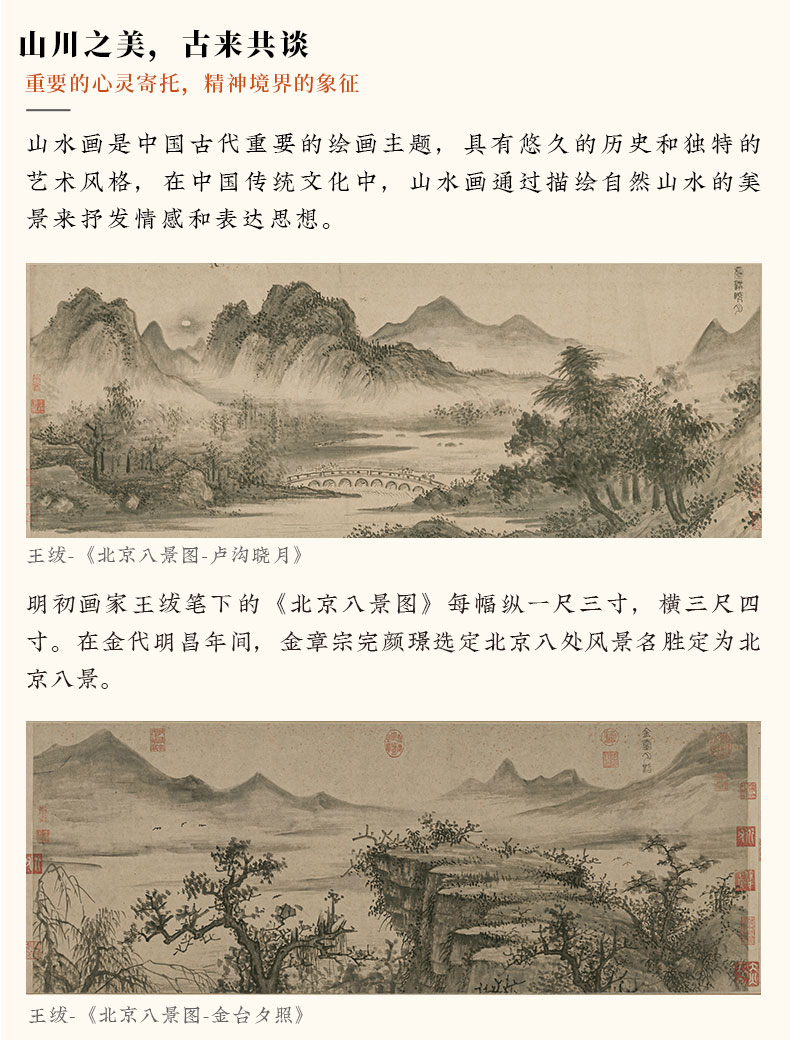 山川之美，古来共谈
重要的心灵寄托，精神境界的象征
山水画是中国古代重要的绘画主题，具有悠久的历史和独特的
艺术风格，在中国传统文化中，山水画通过描绘自然山水的美
景来抒发情感和表达思想。
王绂-《北京八景图-卢沟晓月》
明初画家王绂笔下的《北京八景图》每幅纵一尺三寸，横三尺四
寸。在金代明昌年间，金章宗完颜璟选定北京八处风景名胜定为北
京八景。
金台夕照
王绂-《北京八景图-金台夕照》